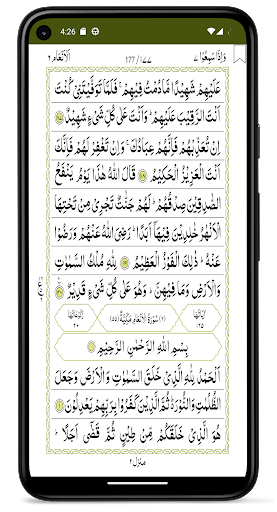 4:26
وَاِذَا سَمِعُوْا ۷
177/۱۷۷
اَلْاَنْعَام ٦
عَلَيْهِمْ شَهِيْدًا مَّا دُمْتُ فِيْهِمْ ۚ فَلَمَّا تَوَفَّيْتَنِيْ كُنْتَ
اَنْتَ الرَّقِيْبَ عَلَيْهِمْ ؕ وَاَنْتَ عَلٰى كُلِّ شَيْءٍ شَهِيْدٌ
اِنْ تُعَذِّبْهُمْ فَاِنَّهُمْ عِبَادُكَ ۚ وَاِنْ تَغْفِرْ لَهُمْ فَاِنَّكَ
اَنْتَ الْعَزِيْزُ الْحَكِيْمُ قَالَ اللّٰهُ هٰذَا يَوْمُ يَنْفَعُ
الصّٰدِقِيْنَ صِدْقُهُمْ ؕ لَهُمْ جَنّٰتٌ تَجْرِيْ مِنْ تَحْتِهَا
الْاَنْهٰرُ خٰلِدِيْنَ فِيْهَاۤ اَبَدًا ؕ رَضِيَ اللّٰهُ عَنْهُمْ وَرَضُوْا
عَنْهُ ؕ ذٰلِكَ الْفَوْزُ الْعَظِيْمُ لِلّٰهِ مُلْكُ السَّمٰوٰتِ
وَالْاَرْضِ وَمَا فِيْهِنَّ ؕ وَهُوَ عَلٰى كُلِّ شَيْءٍ قَدِيْرٌ
اٰيَاتُهَا ۱٦۵
(٦) سُوْرَةُ الْاَنْعَامِ مَكِّيَّةٌ (۵۵)
رُكُوْعَاتُهَا ۲۰
بِسْمِ اللّٰهِ الرَّحْمٰنِ الرَّحِيْمِ
اَلْحَمْدُ لِلّٰهِ الَّذِيْ خَلَقَ السَّمٰوٰتِ وَالْاَرْضَ وَجَعَلَ
الظُّلُمٰتِ وَالنُّوْرَ ؕ ثُمَّ الَّذِيْنَ كَفَرُوْا بِرَبِّهِمْ يَعْدِلُوْنَ
هُوَ الَّذِيْ خَلَقَكُمْ مِّنْ طِيْنٍ ثُمَّ قَضٰۤى اَجَلًا ؕ
منزل ۲